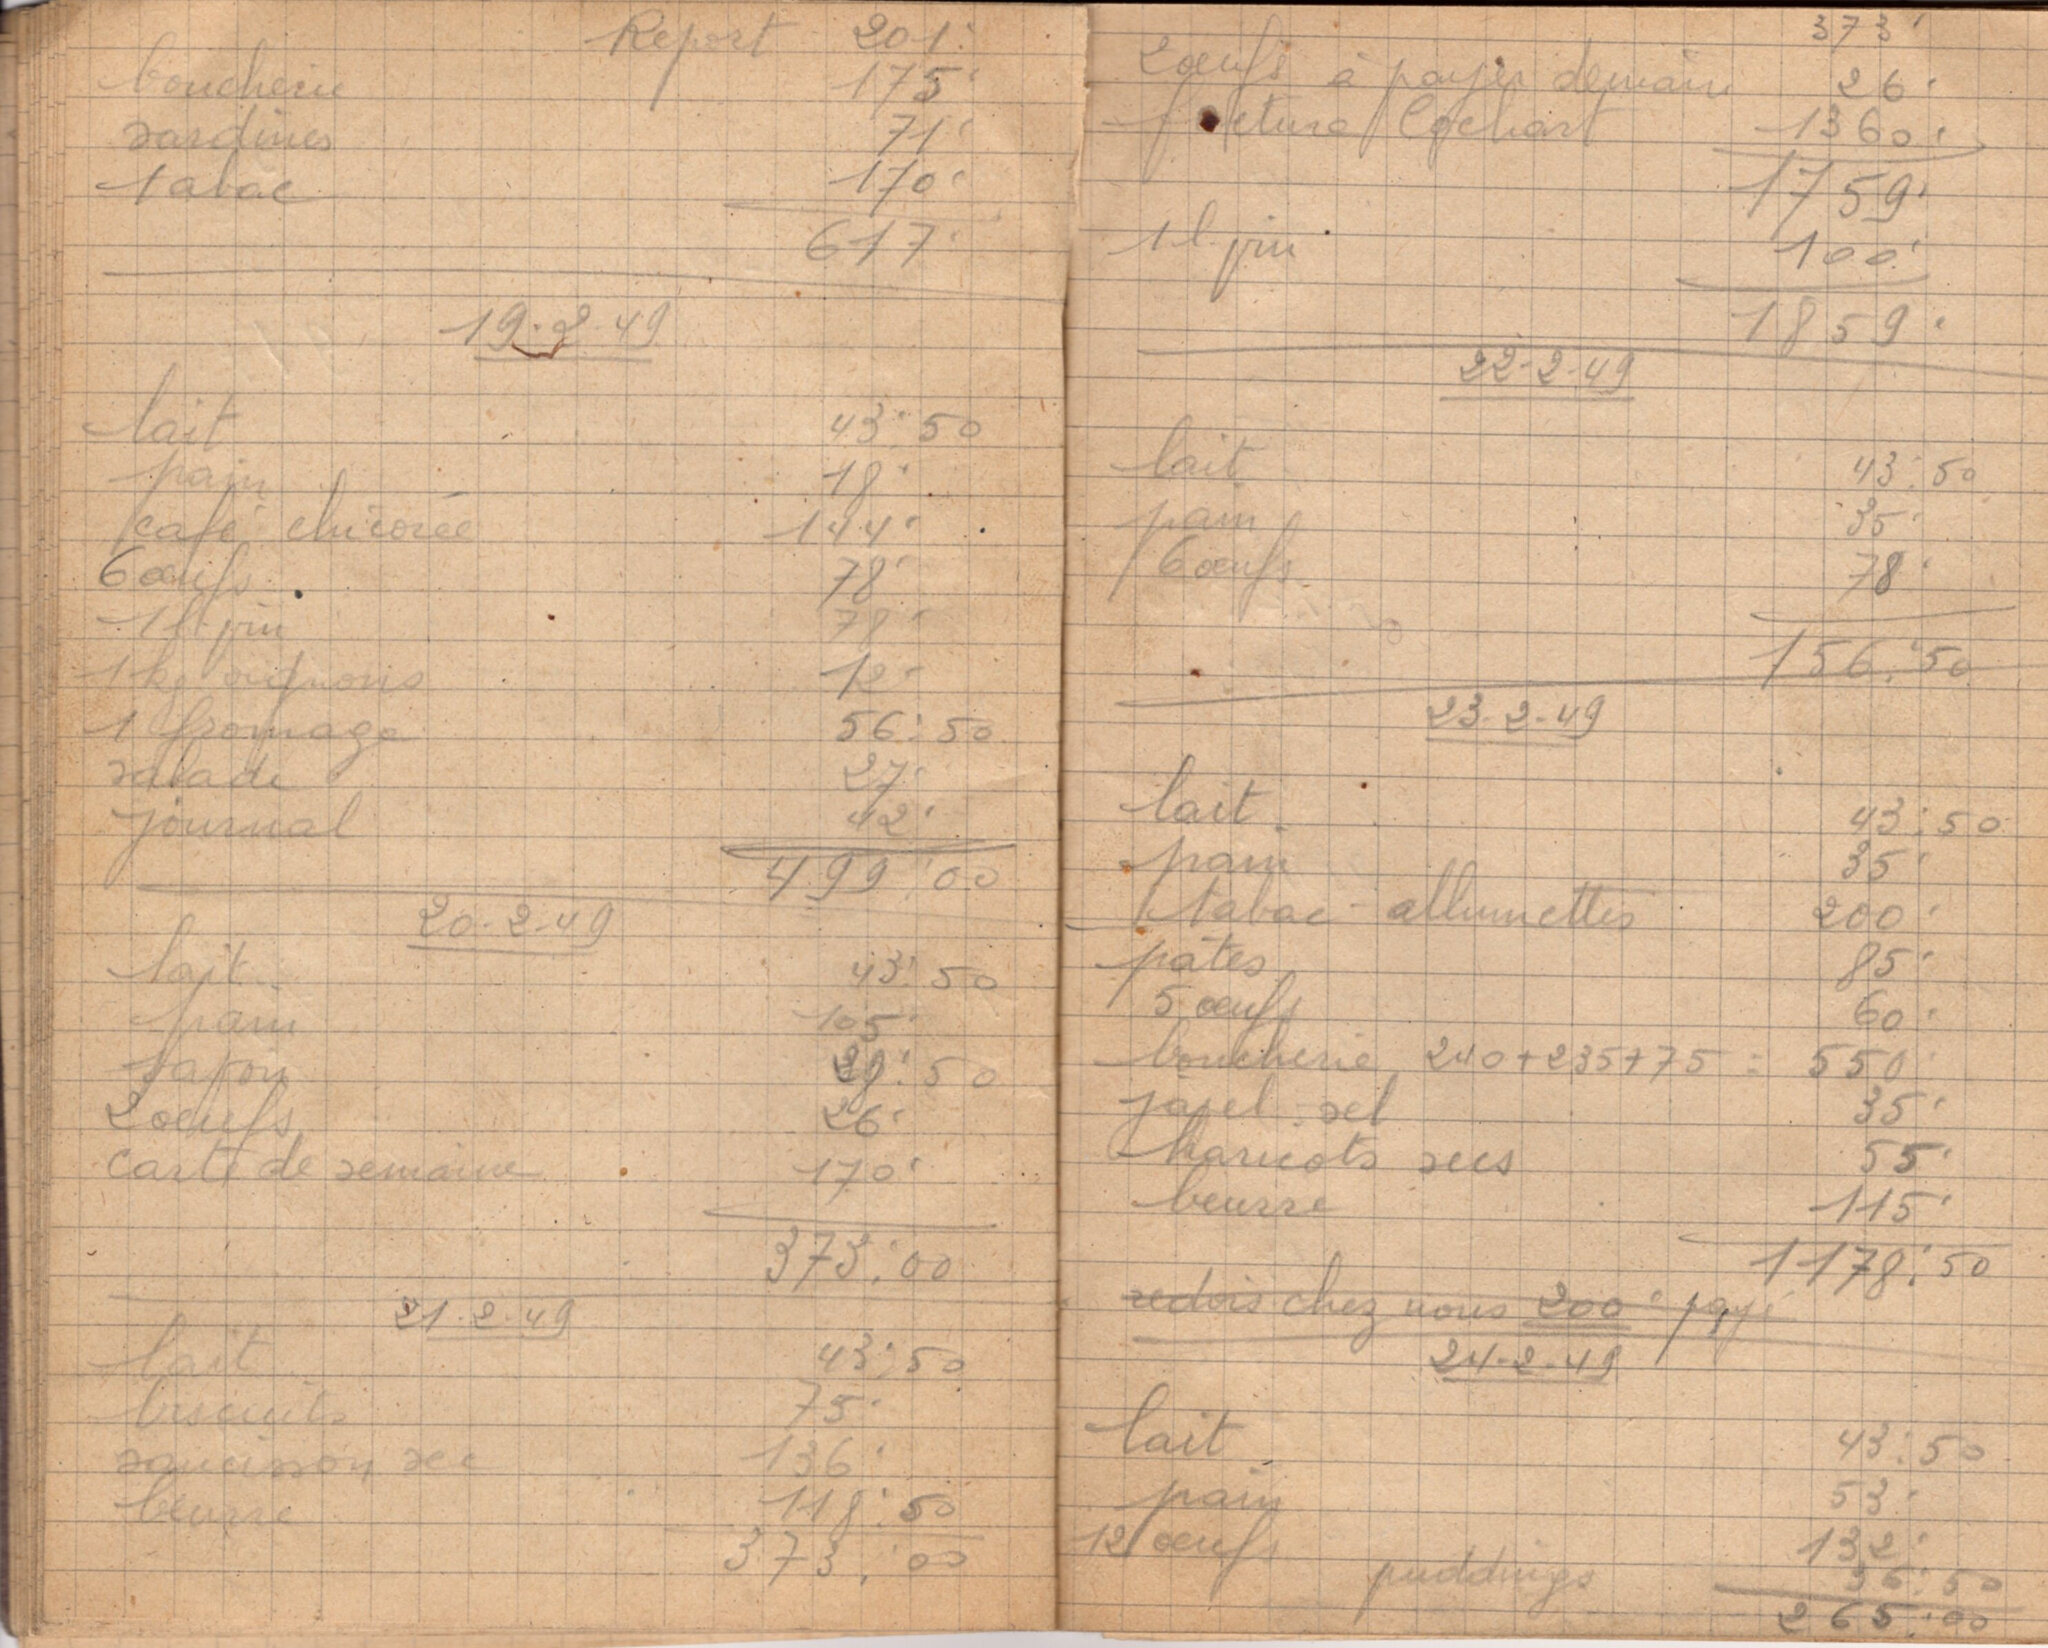 Report 201:
boucherie 175:
sardines 71:
tabac 170:
617:
19-2-49
lait 43:50
pain 18:
café chicorée 144:
6 œufs 78:
1 l. vin 78:
1 kg oignons 12:
1 fromage 56:50
salade 27:
journal 42:
499:00
20-2-49
lait 43:50
pain 105:
savon 28:50
2 œufs 26:
carte de semaine 170:
373:00
21-2-49
lait 43:50
biscuits 75:
saucisson sec 136:
beurre 118:50
373:00
373:
2 œufs à payer demain 26:
facture Cochart 1360:
1759:
1 l. vin 100:
1859:
22-2-49
lait 43:50
pain 35:
6 œufs 78:
156:50
23-2-49
lait 43:50
pain 35:
tabac - allumettes 200:
pâtes 85:
5 œufs 60:
boucherie 240+235+75 = 550:
javel sel 35:
haricots secs 55:
beurre 115:
1178:50
redois chez nous 200: payé
24-2-49
lait 43:50
pain 53:
12 œufs 132:
puddings 36:50
265:00